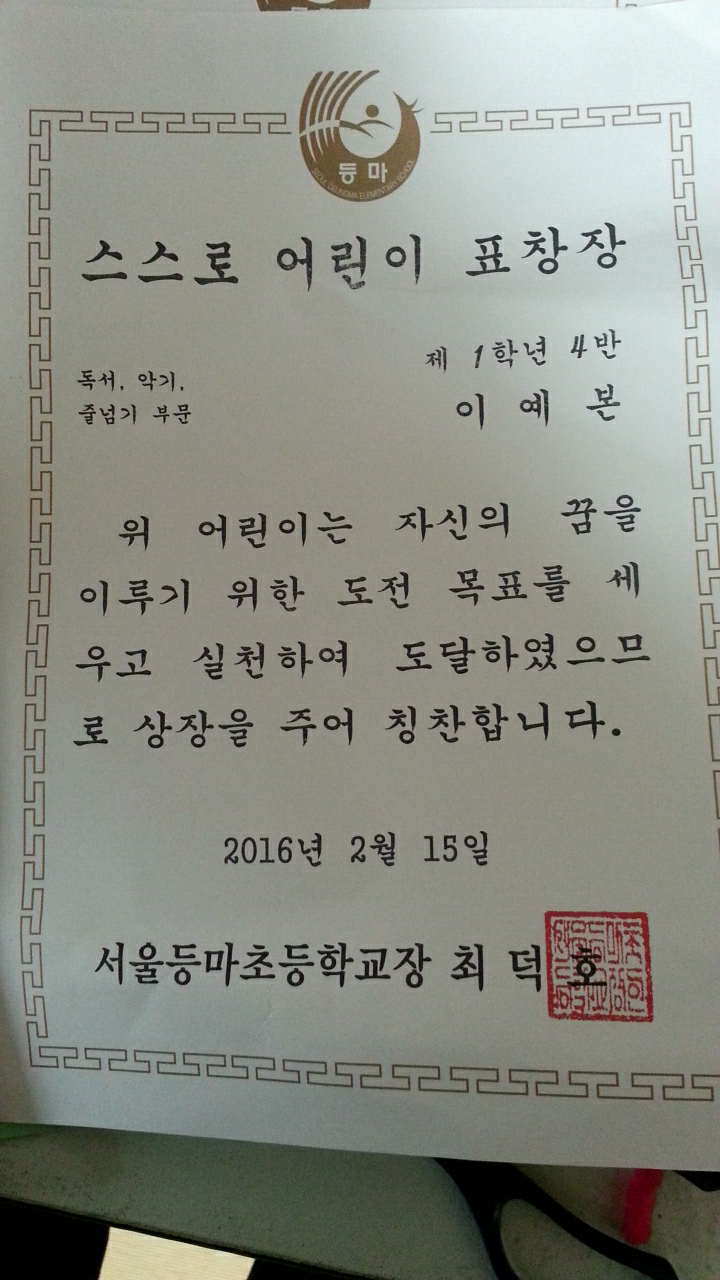 등 마
SEOUL DEUNGMA ELEMENTARY SCHOOL
스스로 어린이 표창장
제 1학년 4반
독서, 악기,
줄넘기 부문
이 예 본
위 어린이는 자신의 꿈을
이루기 위한 도전 목표를 세
우고 실천하여 도달하였으므
로 상장을 주어 칭찬합니다.
2016년 2월 15일
서울등마초등학교장 최 덕 호